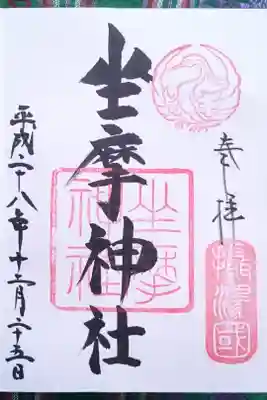 奉拝
摂津國
坐摩神社
坐摩
神社
平成二十八年十二月二十五日